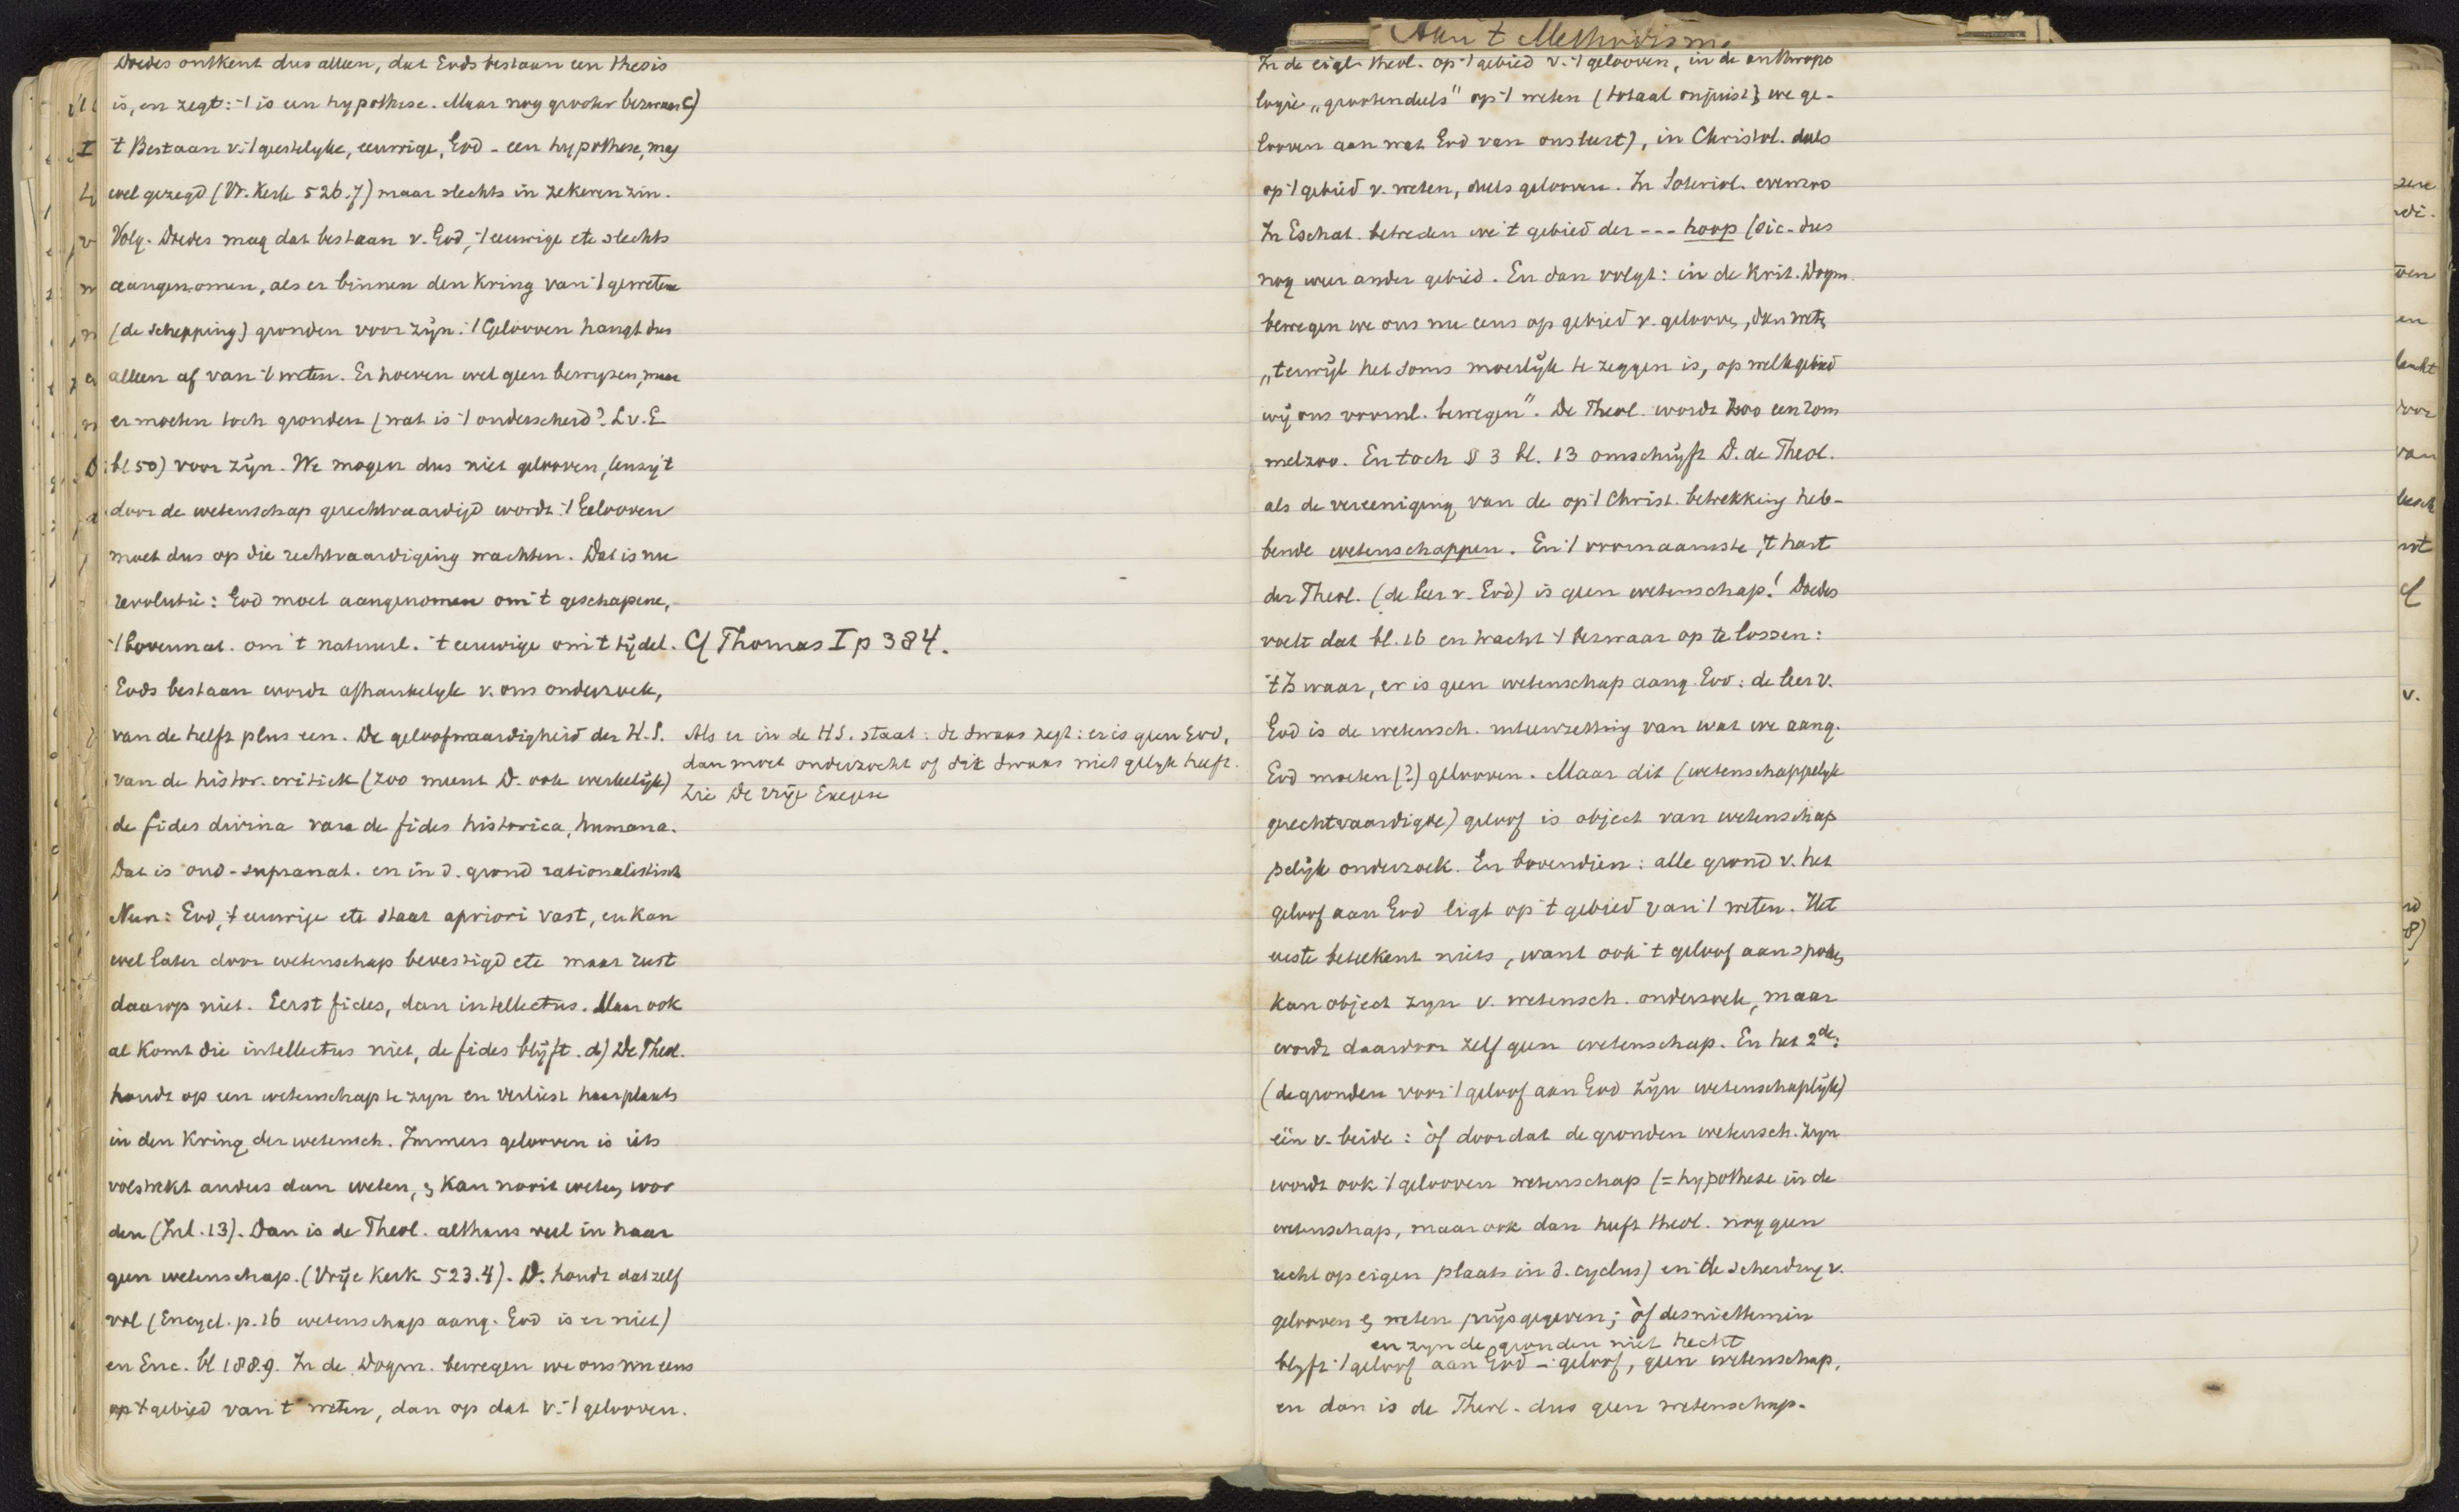 Aan 't Methodisme
Doedes ontkent dus alleen, dat Gods bestaan een thesis
is, en zegt: 't is een hypothese. Maar nog grooter bezwaar c)
't Bestaan v. 't geestelyke, eeuwige, God - een hypothese, mag
wel gezegd (Vr. Kerk 526.7) maar slechts in zekeren zin.
Volg. Doedes mag dat bestaan v. God, 't eeuwige etc slechts
aangenomen, als er binnen den Kring van 't geweten
(de Schepping) gronden voor zijn. 't Gelooven hangt dus
alleen af van 't weten. Er hoeven wel geen bewyzen, maar
er moeten toch gronden (wat is 't onderscheid? L v. G
bl 50) voor zijn. We mogen dus niet gelooven, tenzij 't
door de wetenschap gerechtvaardigd wordt. 't Gelooven
moet dus op die rechtvaardiging wachten. Dat is nu
revolutie: God moet aangenomen om 't geschapene,
't bovennat. om 't natuurl. 't eeuwige om 't tijdel. Cf Thomas I p 384.
Gods bestaan wordt afhankelyk v. ons onderzoek,
van de helft plus een. De geloofwaardigheid der H.S.
van de histor. critiek (zoo meent D. ook werkelijk)
Als er in de H.S. staat: de dwaas zegt: er is geen God,
dan moet onderzocht of die dwaas niet gelyk heeft.
Zie De vrije Exegese
de fides divina van de fides historica, humana.
Dat is oud-supranat. en in d. grond rationalistisch
Neen: God, 't eeuwige etc staat apriori vast, en kan
wel later door wetenschap bevestigd etc maar rust
daarop niet. Eerst fides, dan intellectus. Maar ook
al komt die intellectus niet, de fides blijft. d) De Theol.
houdt op een wetenschap te zyn en verliest haar plaats
in den Kring der wetensch. Immers gelooven is iets
volstrekt anders dan weten, & kan nooit weten wor
den (Inl. 13). Dan is de Theol. althans veel in haar
geen wetenschap. (Vrije Kerk 523.4). D. houdt dat zelf
vol (Encycl. p. 16 wetenschap aang. God is er niet)
en Enc. bl 188.9. In de Dogm. bewegen we ons nu eens
op 't gebied van 't weten, dan op dat v. 't gelooven.
In de eigl. theol. op 't gebied v. 't gelooven, in de anthropo
logie „grootendeels" op 't weten (totaal onjuist; we ge-
looven aan wat God van ons leert), in Christol. deels
op 't gebied v. weten, deels gelooven. In Soteriol. evenzoo
In Eschat. betreden we 't gebied der --- hoop (sic - dus
nog weer ander gebied. En dan volgt: in de Krit. Dogm.
bewegen we ons nu eens op gebied v. gelooven, dan weten
„terwijl het soms moeilijk te zeggen is, op welk gebied
wij ons voornl. bewegen". De Theol. wordt zoo een zom
melzoo. En toch § 3 bl. 13 omschrijft D. de Theol.
als de vereeniging van de op 't Christ. betrekking heb-
bende wetenschappen. En 't voornaamste, 't hart
der Theol. (de leer v. God) is geen wetenschap! Doedes
voelt dat bl. 16 en tracht 't bezwaar op te lossen:
't Is waar, er is geen wetenschap aang. God: de leer v.
God is de wetensch. uiteenzetting van wat we aang.
God moeten (?) gelooven. Maar dit (wetenschappelyk
gerechtvaardigde) geloof is object van wetenschap
pelijk onderzoek. En bovendien: alle grond v. het
geloof aan God ligt op 't gebied van 't weten. Het
eerste beteekent niets, want ook 't geloof aan spoken
kan object zyn v. wetensch. onderzoek, maar
wordt daardoor zelf geen wetenschap. En het 2de:
(de gronden voor 't geloof aan God zijn wetenschaplijk)
één v. beide: òf doordat de gronden wetensch. zyn
wordt ook 't gelooven wetenschap (= hypothese in de
wetenschap, maar ook dan heeft theol. nog geen
recht op eigen plaats in d. cyclus) en de scheiding v.
gelooven & weten prijsgegeven; òf desniettemin
en zyn de gronden niet hecht
blyft 't geloof aan God - geloof, geen wetenschap,
en dan is de Theol. dus geen wetenschap.